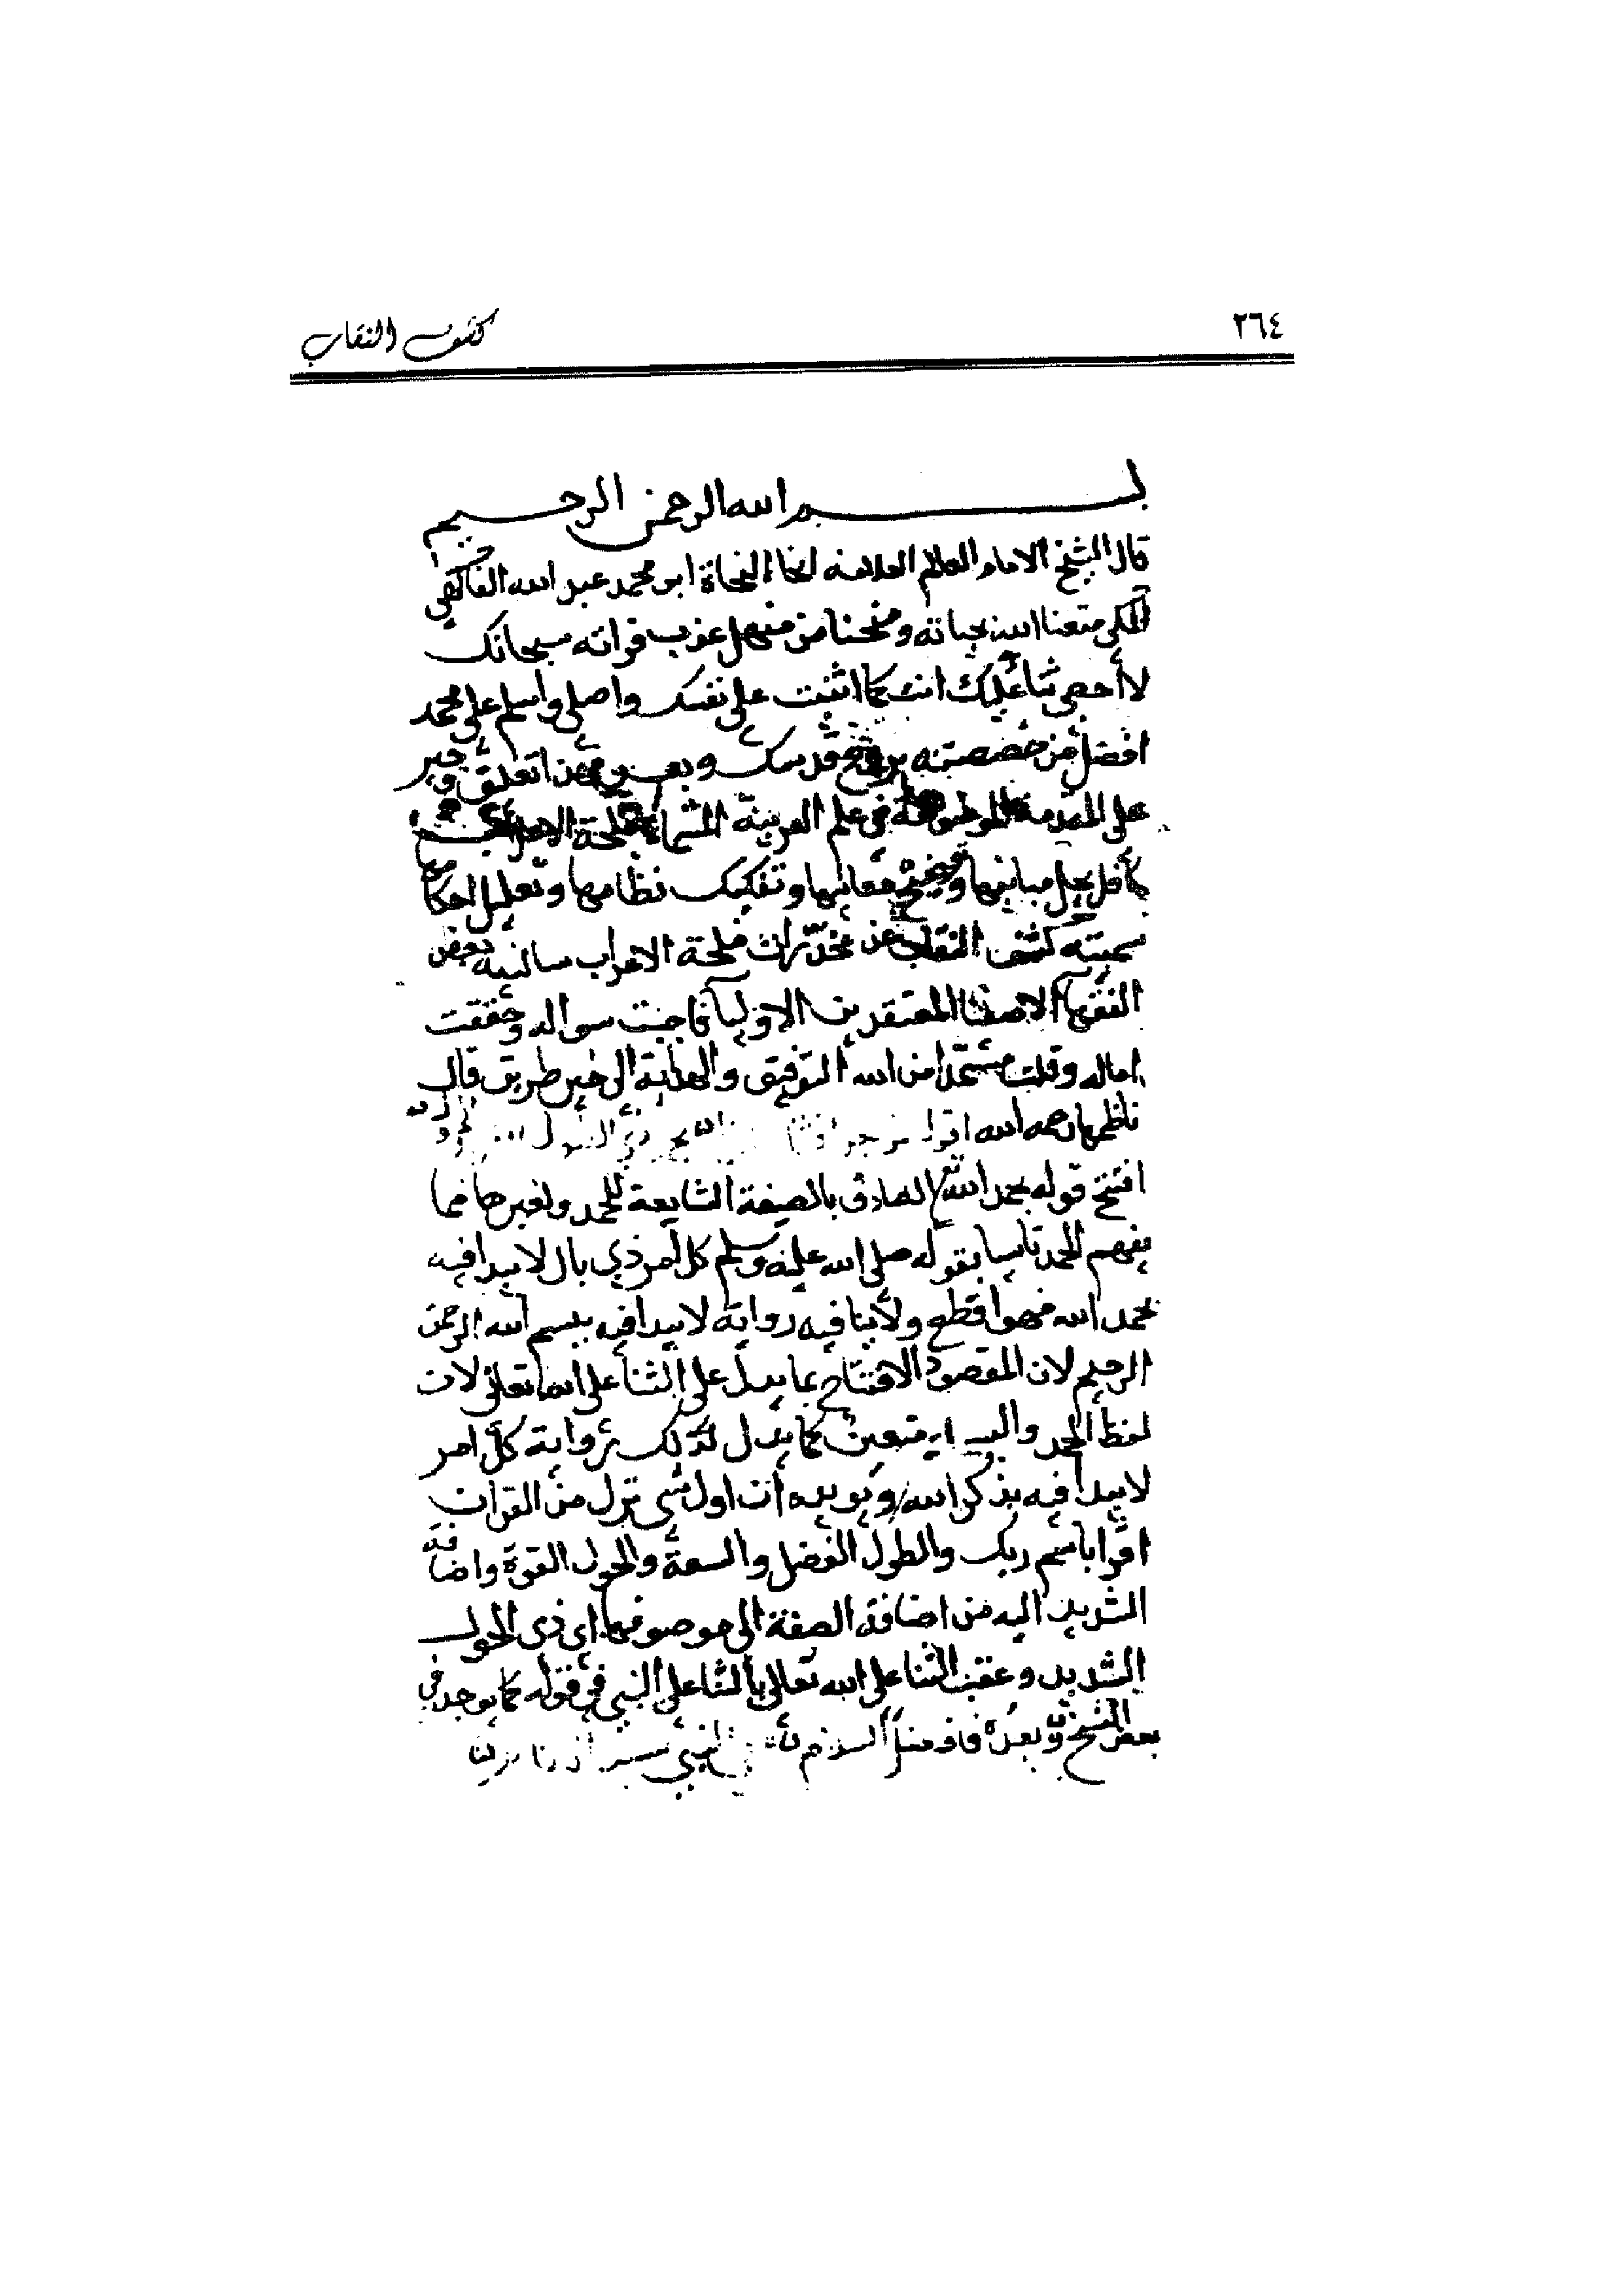 ٢٦٤
كشف النقاب
بسم الله الرحمن الرحيم
قال الشيخ الامام العالم العلامه النحاة ابو محمد عبد الله الفاكهي
المكي متعنا الله بحياته ومنحنا من منهل عذب فراته سبحانك
لا أحصي ثنا عليك انت كما اثنيت على نفسك واصلي واسلم على محمد
افضل من خصصته بروح قدسك وبعد فهذا تعليق وجيز
على المقدمة الموضوعة في علم العربية المسماة بملحة الاعراب
كافل بحل مبانيها وتوضيح معانيها وتفكيك نظامها وتعليل احكامها
سميته كشف النقاب عن مخدّرات ملحة الاعراب سالنيه بعض
الفقرآ الاصفيا المعتقدين الاوليآ فاجبت سواله وحققت
اماله وقلت مستمدا من الله التوفيق والهداية الى خير طريق قال
ناظمها رحمه الله اقول من بعد
افتتح قوله بحمد الله الصادق بالصيغة الشايعة للحمد ولغيرها مما
يفهم الحمد تاسيا بقوله صلى الله عليه وسلم كل امر ذي بال لا يبدا فيه
بحمد الله فهو اقطع ولا ينافيه رواية لا يبدا فيه ببسم الله الرحمن
الرحيم لان المقصود الافتتاح بما يدل على الثنا على الله تعالى لان
لفظ الحمد متعين كما يدل لذلك رواية كل امر
لا يبدا فيه بذكر الله ويويده أن اول شي نزل من القران
اقرا باسم ربك والطول الفضل والسعة والحول القوة واضافة
الشديد اليه من اضافة الصفة الى موصوفها اي ذي الحول
الشديد وعقب الثنا على الله تعالى بالثنا على النبي في قوله كما يوجد في
بعض النسخ وبعده فافضل السلام النبي سيد